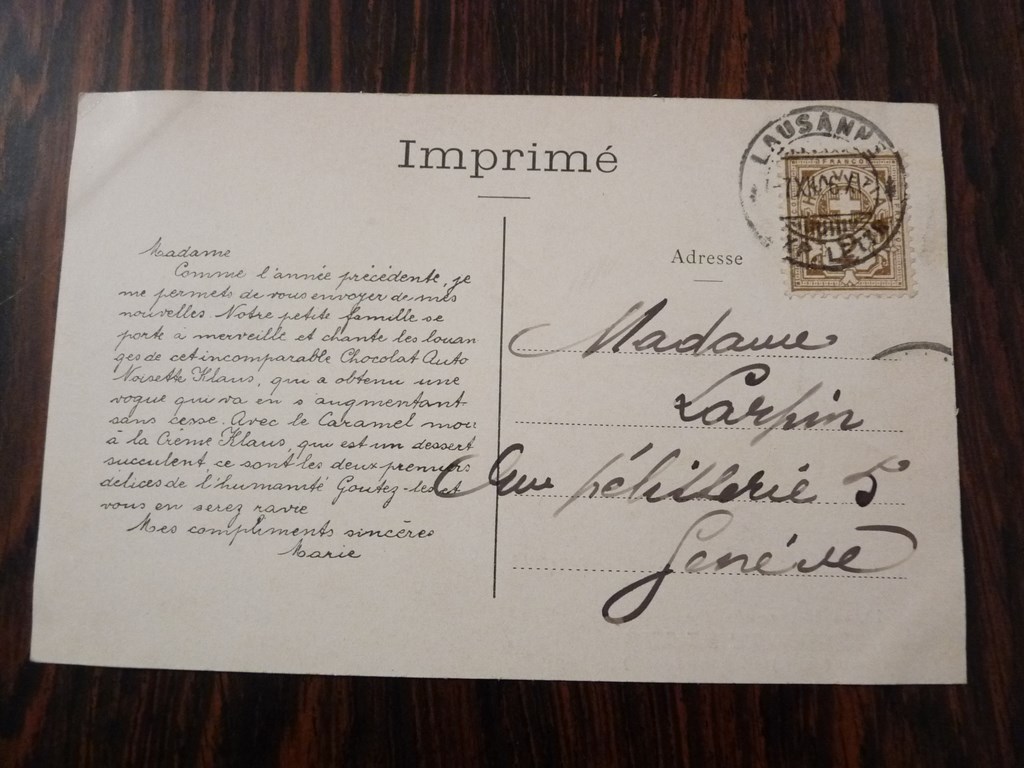 Imprimé
LAUSANNE
FRANCO
Adresse
Madame
Comme l'année précédente, je
me permets de vous envoyer de mes
nouvelles. Notre petite famille se
porte à merveille et chante les louan
ges de cet incomparable Chocolat Auto
Noisette Klaus, qui a obtenu une
vogue qui va en s'augmentant
sans cesse. Avec le Caramel mou
à la Crème Klaus, qui est un dessert
succulent, ce sont les deux premiers
délices de l'humanité Goutez-les et
vous en serez ravie
Mes compliments sincères
Marie
Madame
Larpin
Rue pélisserie 5
Genève